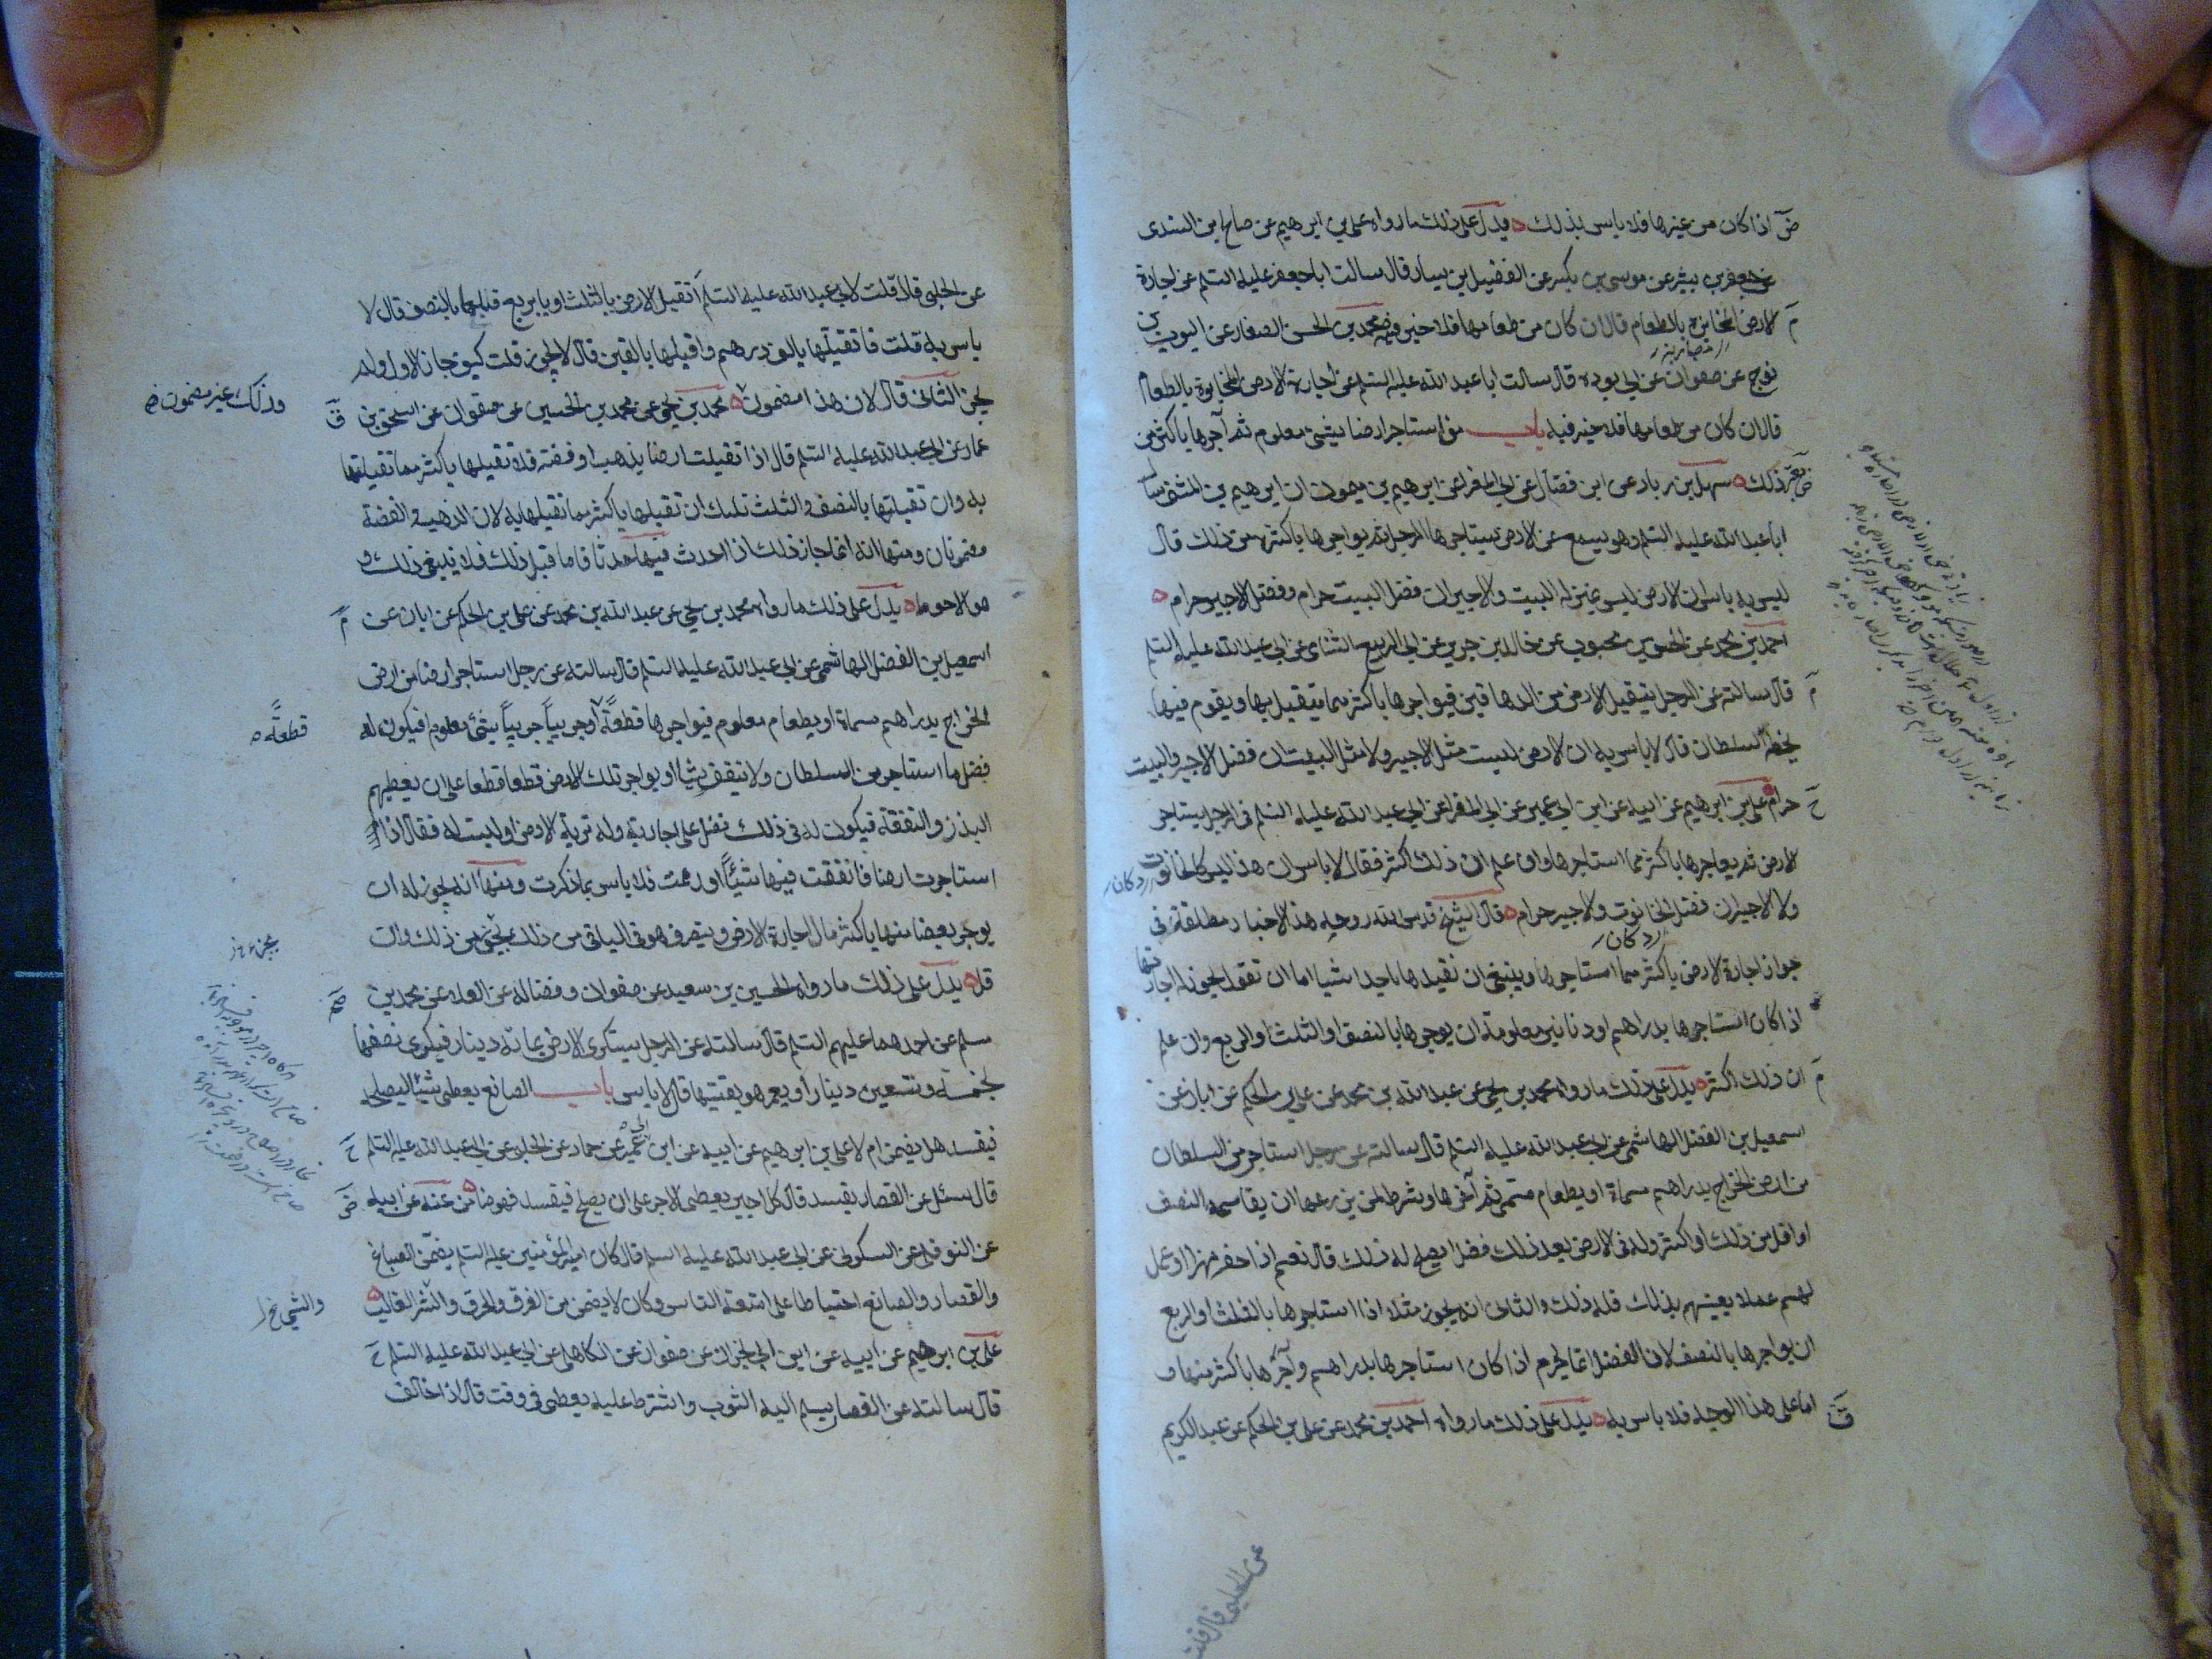 اذا كان من غيرها فلا باس بذلك ويدل على ذلك ما رواه على بن ابرهيم عن صالح بن السندى
عن جعفر بن بشير عن موسى بن بكير عن الفضيل بن يسار قال سالت ابا جعفر عليه السلم عن اجارة
الارض المخابرة بالطعام قال ان كان من طعامها فلا خير فيه محمد بن الحسن الصفار عن ايوب بن
نوح عن صفوان عن ابى بردة قال سالت ابا عبد الله عليه السلم عن اجارة الارض المخابرة بالطعام
قال ان كان من طعامها فلا خير فيه باب من استاجر ارضا بشئ معلوم ثم آجرها باكثر من
ذلك سهل بن زياد عن ابن فضال عن ابى المغرا عن ابرهيم بن ميمون ان ابرهيم بن المثنى سال
ابا عبد الله عليه السلم وهو يسمع عن الارض يستاجرها الرجل ثم يواجرها باكثر من ذلك قال
ليس به باس ان الارض ليس بمنزلة البيت والاجير ان فضل البيت حرام وفضل الاجير حرام
احمد بن محمد عن الحسن بن محبوب عن خالد بن جرير عن ابى الربيع الشامى عن ابى عبد الله عليه السلم
قال سالته عن الرجل يتقبل الارض من الدهاقين فيواجرها باكثر مما يتقبل بها ويقوم فيها
بحظ السلطان قال لا باس به ان الارض ليست مثل الاجير ولا مثل البيت ان فضل الاجير والبيت
حرام على بن ابرهيم عن ابيه عن ابن ابى عمير عن ابى المغرا عن ابى عبد الله عليه السلم فى الرجل يستاجر
الارض ثم يواجرها باكثر مما استاجرها وان علم ان ذلك اكثر فقال لا باس ان هذا ليس كالحانوت
ولا الاجير ان فضل الحانوت والاجير حرام قال الشيخ قدس الله روحه هذه الاخبار مطلقة فى
جواز اجارة الارض باكثر مما استاجرها وينبغى ان نقيدها باحد اشيا اما ان نقول يجوز له اجارتها
اذا كان استاجرها بدراهم او دنانير معلومة ان يوجرها بالنصف او الثلث او الربع وان علم
ان ذلك اكثر يدل على ذلك ما رواه محمد بن يحيى عن عبد الله بن محمد عن على بن الحكم عن ابان عن
اسمعيل بن الفضل الهاشمى عن ابى عبد الله عليه السلم قال سالته عن رجل استاجر من السلطان
من ارض الخراج بدراهم مسماة او بطعام مسمى ثم آجرها وشرط لمن يزرعها ان يقاسمه النصف
او اقل من ذلك او اكثر وله فى الارض بعد ذلك فضل ايصلح له ذلك قال نعم اذا حفر نهرا او عمل
لهم عملا يعينهم بذلك فله ذلك والثانى انه يجوز مثله اذا استاجرها بالثلث او الربع
ان يواجرها بالنصف لان الفضل انما يحرم اذا كان استاجرها بدراهم وآجرها باكثر منها و
اما على هذا الوجه فلا باس به يدل على ذلك ما رواه احمد بن محمد عن على بن الحكم عن عبد الكريم
عن الحلبى قال قلت
عن الحلبى قال قلت لابى عبد الله عليه السلم اتقبل الارض بالثلث او بالربع فاقبلها بالنصف قال لا
باس به قلت فاتقبلها بالف درهم واقبلها بالفين قال لا يجوز قلت كيف جاز الاول ولم
يجز الثانى قال لان هذا مضمون محمد بن يحيى عن محمد بن الحسين عن صفوان عن اسحق بن
وذلك غير مضمون
عمار عن ابى عبد الله عليه السلم قال اذا تقبلت ارضا بذهب او فضة فلا تقبلها باكثر مما تقبلتها
به وان تقبلتها بالنصف والثلث فلك ان تقبلها باكثر مما تقبلتها به لان الذهب والفضة
مضمونان ومنها انه انما جاز ذلك اذا احدث فيها حدثا فاما قبل ذلك فلا ينبغى ذلك و
هو الاحوط يدل على ذلك ما رواه محمد بن يحيى عن عبد الله بن محمد عن على بن الحكم عن ابان عن
اسمعيل بن الفضل الهاشمى عن ابى عبد الله عليه السلم قال سالته عن رجل استاجر ارضا من ارض
الخراج بدراهم مسماة او بطعام معلوم فيواجرها قطعة او جريبا جريبا بشئ معلوم فيكون له
قطعة
فضل ما استاجر من السلطان ولا ينفق شيئا او يواجر تلك الارض قطعا قطعا على ان يعطيهم
البذر والنفقة فيكون له فى ذلك فضل على اجارته وله تربة الارض او ليست له فقال اذا
استاجرت ارضا فانفقت فيها شيئا او رممت فلا باس بما ذكرت ومنها انه يجوز له ان
يوجر بعضا منها باكثر مال اجارة الارض ويتصرف هو فى الباقى من ذلك بجزء من ذلك وان
قل يدل على ذلك ما رواه الحسين بن سعيد عن صفوان وفضالة عن العلا عن محمد بن
مسلم عن احدهما عليهم السلم قال سالته عن الرجل يستكرى الارض بمائة دينار فيكرى نصفها
بخمسة وتسعين دينارا ويعمر هو بقيتها قال لا باس باب الصانع يعطى شيئا ليصلحه
فيفسده هل يضمن ام لا على بن ابرهيم عن ابيه عن ابن ابى عمير عن حماد عن الحلبى عن ابى عبد الله عليه السلم
قال سئل عن القصار يفسد قال كل اجير يعطى الاجر على ان يصلح فيفسد فهو ضامن عنه عن ابيه
عن النوفلى عن السكونى عن ابى عبد الله عليه السلم قال كان امير المؤمنين عليه السلم يضمن الصباغ
والقصار والصائغ احتياطا على امتعة الناس وكان لا يضمن من الغرق والحرق والشئ الغالب
والشئ خ ل
على بن ابرهيم عن ابيه عن ابن ابى نجران عن صفوان عن الكاهلى عن ابى عبد الله عليه السلم
قال سالته عن القصار يسلم اليه الثوب واشترط عليه يعطى فى وقت قال اذا خالف